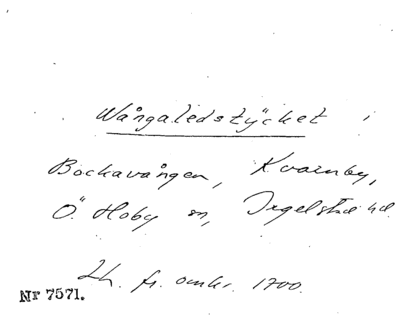 Wångaledstycket i
Bockavången, Kvarnby,
Ö. Hoby sn, Ingelstad hd.
Lh. fr. omkr. 1700.
Nr 7571.